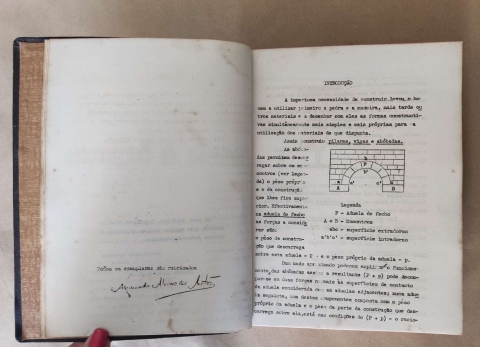 Todos os exemplares são rubricados
INTRODUÇÃO
A imperiosa necessidade de construir levou o ho-
mem a utilizar primeiro a pedra e a madeira, mais tarde ou
tros materiais e a desenhar com eles as formas constructi-
vas simultâneamente mais simples e mais próprias para a
utilização dos materiais de que dispunha.
Assim construiu pilares, vigas e abóbadas.
As abóba-
das permitem descar
regar sobre os en-
contros (ver legen-
da) o pêso próprio
e o da construção
que lhes fica supe-
rior. Efectivamente
na aduela de fecho
as forças a conside
rar são:
o pêso da constru-
ção que descarrega
sobre esta aduela - P - e o pêso próprio da aduela - p.
Legenda
F - Aduela de fecho
A e B - Encontros
abc - superfície extradorso
a'b'c' - superfície intradorso
A
B
F
b
b'
a
a'
c'
c
Dum modo aproximado podemos explicar o funciona-
mento das abóbadas assim: a resultante (P + p) pode decom-
por-se em duas forças normais às superfícies de contacto
da aduela considerada com as aduelas adjacentes; numa adue
la qualquer, uma destas componentes composta com o pêso
próprio da aduela e o pêso da parte da construção que des-
carrega sobre ela, está nas condições de (P + p) - o racio-